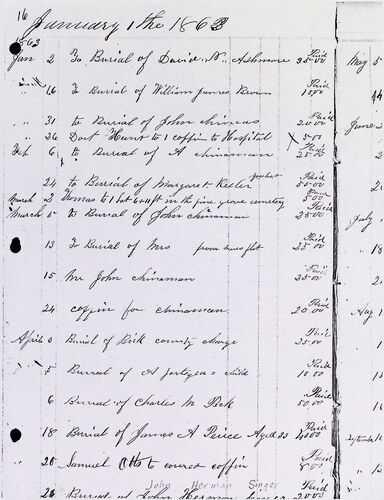 16 January 1 the 1863
1863
Jan 2 To Burial of David N. Ashmore Paid 35.00
16 To Burial of William James Brown Paid 10.00
31 to Burial of John Paid 20.00
26 Hunt to 1 coffin to Hospital X 5.00
Feb 6 to Burial of A chinaman Paid 25.00
24 to Burial of Margaret Keeler Paid 55.00
March 2 Thomas to 1 Lot 6x11 ft in the pine grove cemetery 5.00
March 5 to Burial of John chinaman Paid 25.00
13 To Burial of Mrs from Paid 25.00
15 Mr John chinaman Paid 25.00
24 coffin for chinaman Paid 20.00
April 3 Burial of Dick county charge Paid 25.00
5 Burial of A child Paid 10.00
6 Burial of Charles M Peck Paid 50.00
18 Burial of James A Peirce Aged 23 Paid
25 Samuel Otto to coffin Paid
John Herman Singer
26 Burial of John Herman Paid
May 5
June
July
18
Aug 1